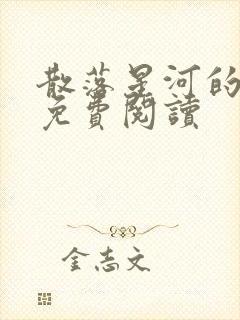 散落星河的
免費閱讀
金志文